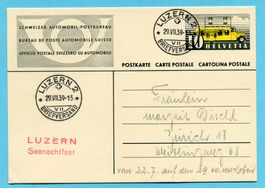 SCHWEIZER. AUTOMOBIL-POSTBUREAU
BUREAU DE POSTE AUTOMOBILE SUISSE
UFFICIO POSTALE SVIZZERO SU AUTOMOBILE
LUZERN 2
29.VII.39-15
VII
BRIEFVERSAND
10 HELVETIA
POSTKARTE CARTE POSTALE CARTOLINA POSTALE
LUZERN 2
29.VII.39-15
VII
BRIEFVERSAND
Fräulein
Margrit
Zürich 18
61
LUZERN
Seenachtfest
vom 22.7. auf den 29.